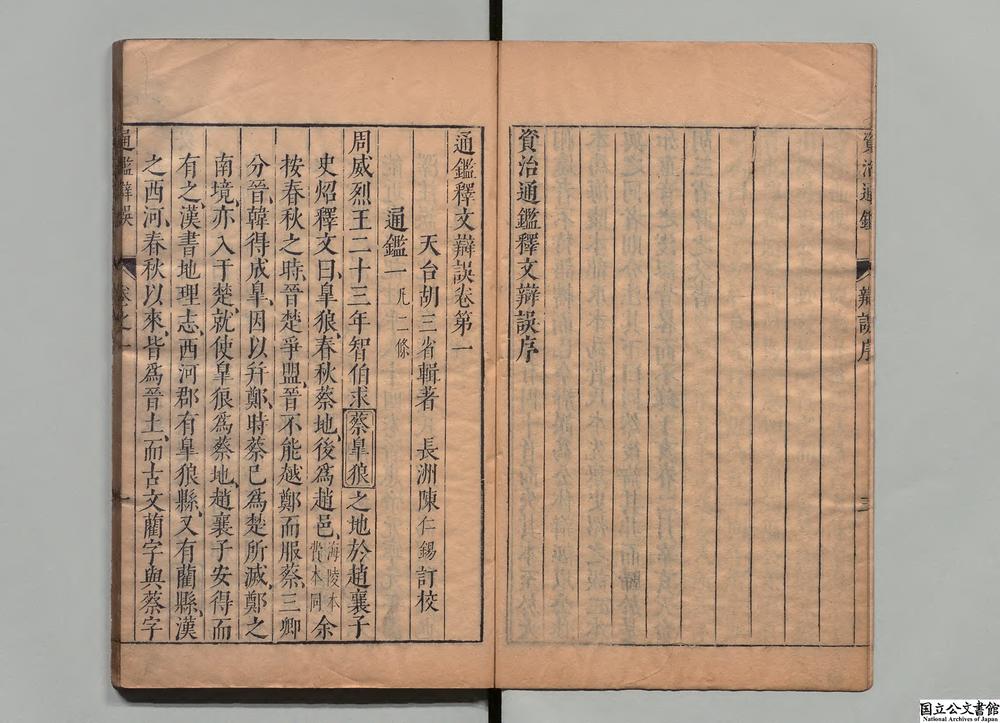 資治通鑑
辯誤序
三
資治通鑑釋文辯誤序
通鑑釋文辯誤卷第一
天台胡三省輯著　長洲陳仁錫訂校
通鑑一凡二條
周威烈王二十三年智伯求蔡臯狼之地於趙襄子
史炤釋文曰臯狼春秋蔡地後爲趙邑海陵本費本同余
按春秋之時晉楚爭盟晉不能越鄭而服蔡三卿
分晉韓得成臯因以幷鄭時蔡已爲楚所滅鄭之
南境亦入于楚就使臯狼爲蔡地趙襄子安得而
有之漢書地理志西河郡有臯狼縣又有藺縣漢
之西河春秋以來皆爲晉土而古文藺字與蔡字
通鑑辯誤
卷之一
一
国立公文書館
National Archives of Japan